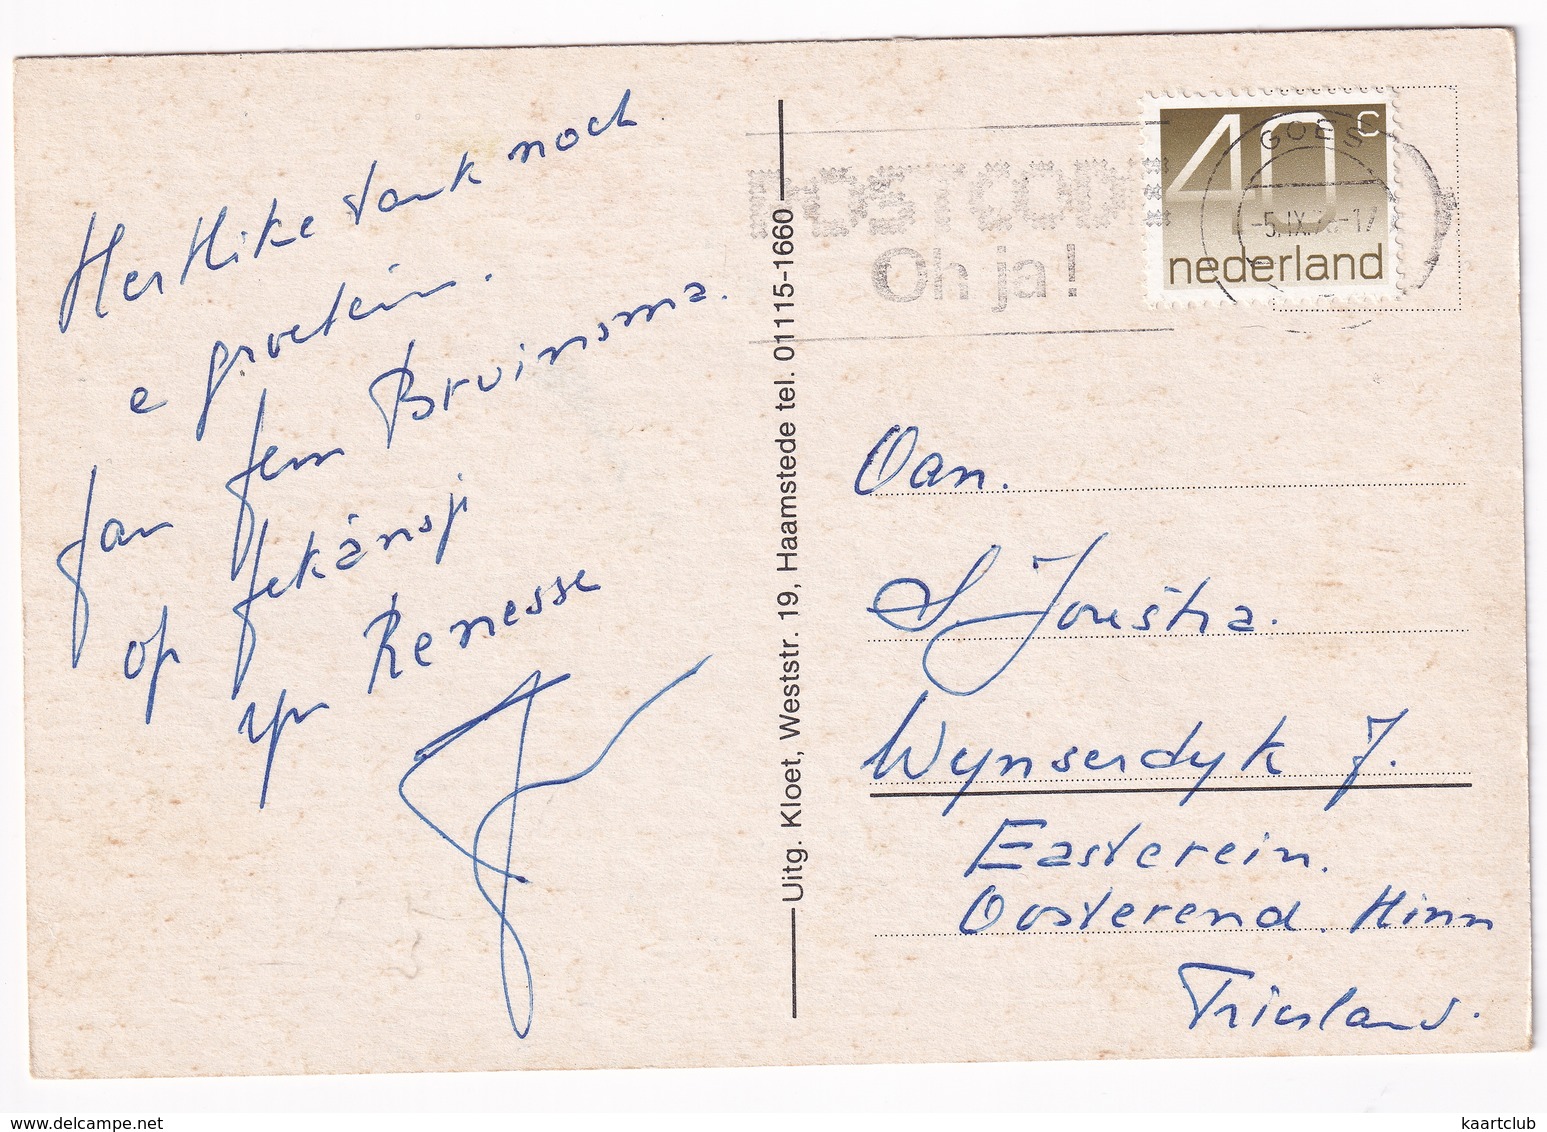 Hertlike tank noch
e groetein.
fan fem Bruinsma.
op fekânsji
yn Renesse
Uitg. Kloet, Weststr. 19, Haamstede tel. 01115-1660
POSTCODE
Oh ja!
GOES
-5.IX.7 -17
40 c
nederland
Oan.
S. Joustra.
Wynserdyk 7.
Easterein.
Oosterend. Hinn
Friesland.
www.delcampe.net
kaartclub